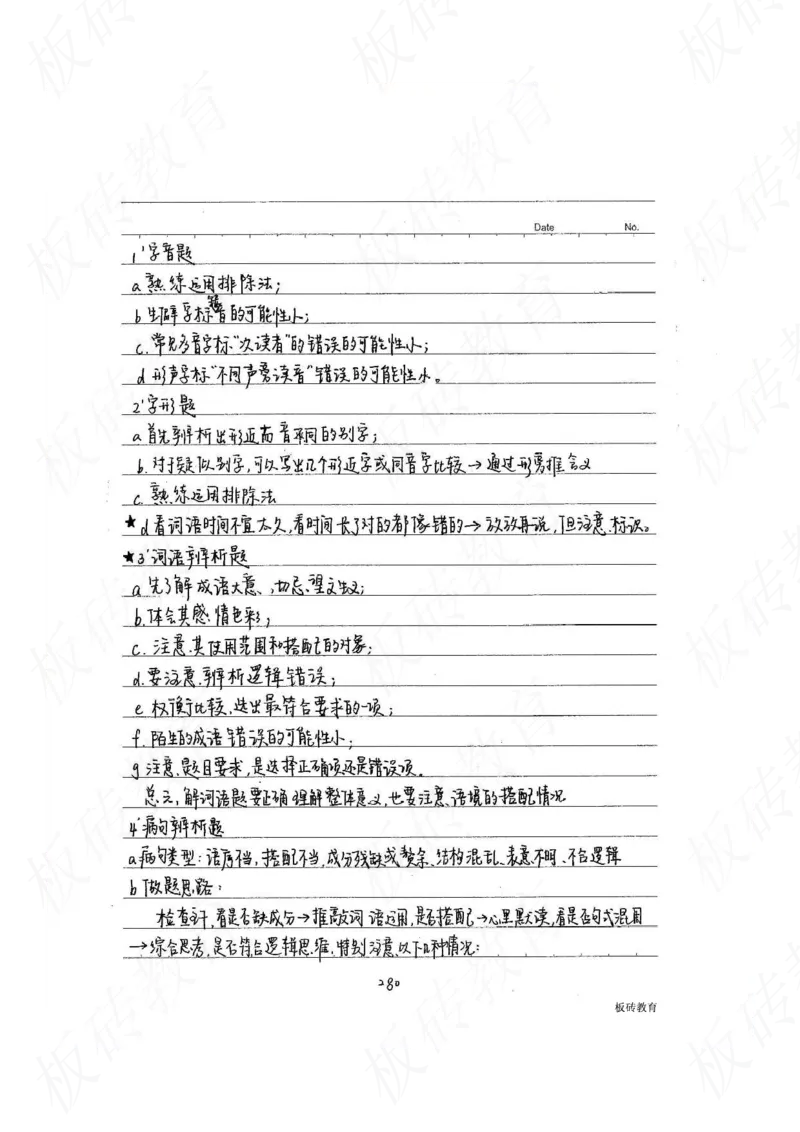 Date No.
1' 字音题
a.熟练运用排除法;
b 生僻字标错音的可能性小;
c.常见多音字标"次读音"的错误的可能性小;
d 形声字标"不同声旁读音"错误的可能性小。
2' 字形题
a.首先辨析出形近而音不同的别字;
b.对于疑似别字,可以写出几个形近字或同音字比较→通过形旁推会义
c.熟练运用排除法
★d 看词语时间不宜太久,看时间长了对的都像错的→放放再说,但注意标识。
★3' 词语辨析题
a 先了解成语大意、切忌望文生义;
b.体会其感情色彩;
c.注意其使用范围和搭配的对象;
d.要注意辨析逻辑错误;
e 权衡比较,选出最符合要求的一项;
f.陌生的成语错误的可能性小;
g 注意题目要求,是选择正确项还是错误项。
总之,解词语题要正确理解整体意义,也要注意语境的搭配情况
4' 病句辨析题
a.病句类型:语序不当,搭配不当,成分残缺或赘余、结构混乱、表意不明、不合逻辑
b 做题思路:
检查主干,看是否缺成分→推敲词语运用,是否搭配→心里默读,看是否句式混用
→综合思考,是否符合逻辑思维,特别注意以下几种情况:
280
板砖教育
板砖教育
板砖教育
板砖教育
板砖教育
板砖教育
板砖教育
板砖教育